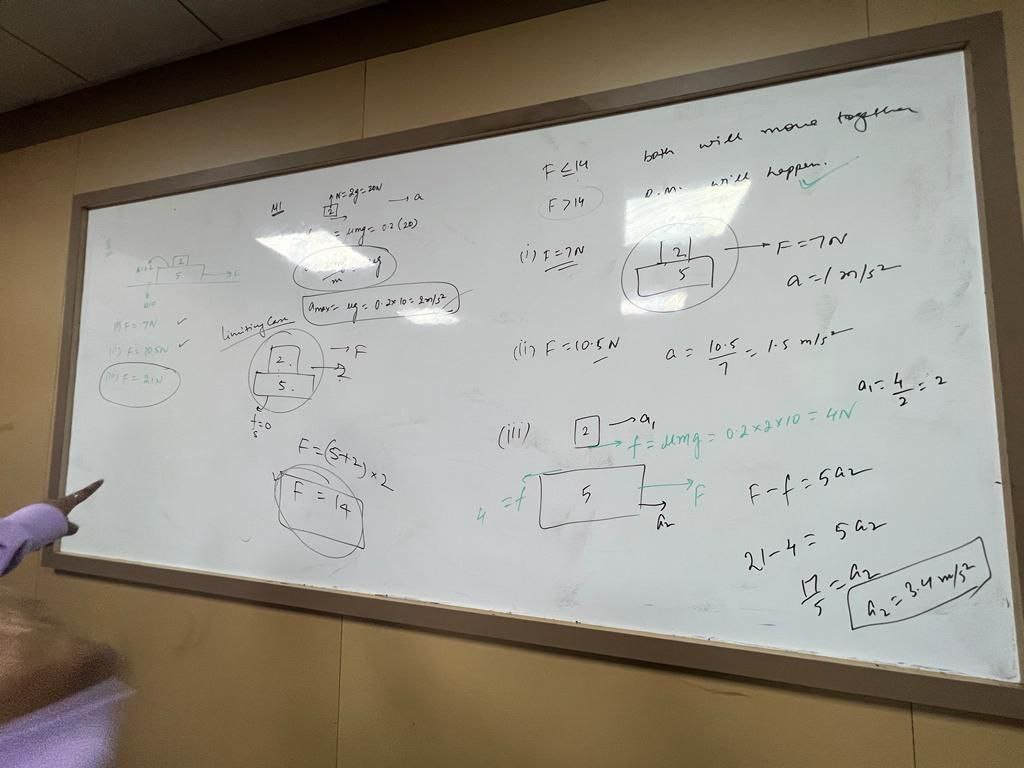 2
5
F
(i) F = 7N
(ii) F = 10.5N
(iii) F = 21N
M1
N=2g=20N
2
a
= μmg = 0.2(20)
m
amax = μg = 0.2×10 = 2m/s²
Limiting Case
2
5
F
2
f=0
s
F = (5+2)×2
F = 14
F ≤ 14 both will move together
F > 14 will happen.
(i) F = 7N
2
5
F = 7N
a = 1 m/s²
(ii) F = 10.5N a = 10.5/7 = 1.5 m/s²
a₁ = 4/2 = 2
(iii) 2 a₁
f = μmg = 0.2×2×10 = 4N
4 = f 5 F
a₂
F - f = 5a₂
21 - 4 = 5a₂
17/5 = a₂
a₂ = 3.4 m/s²